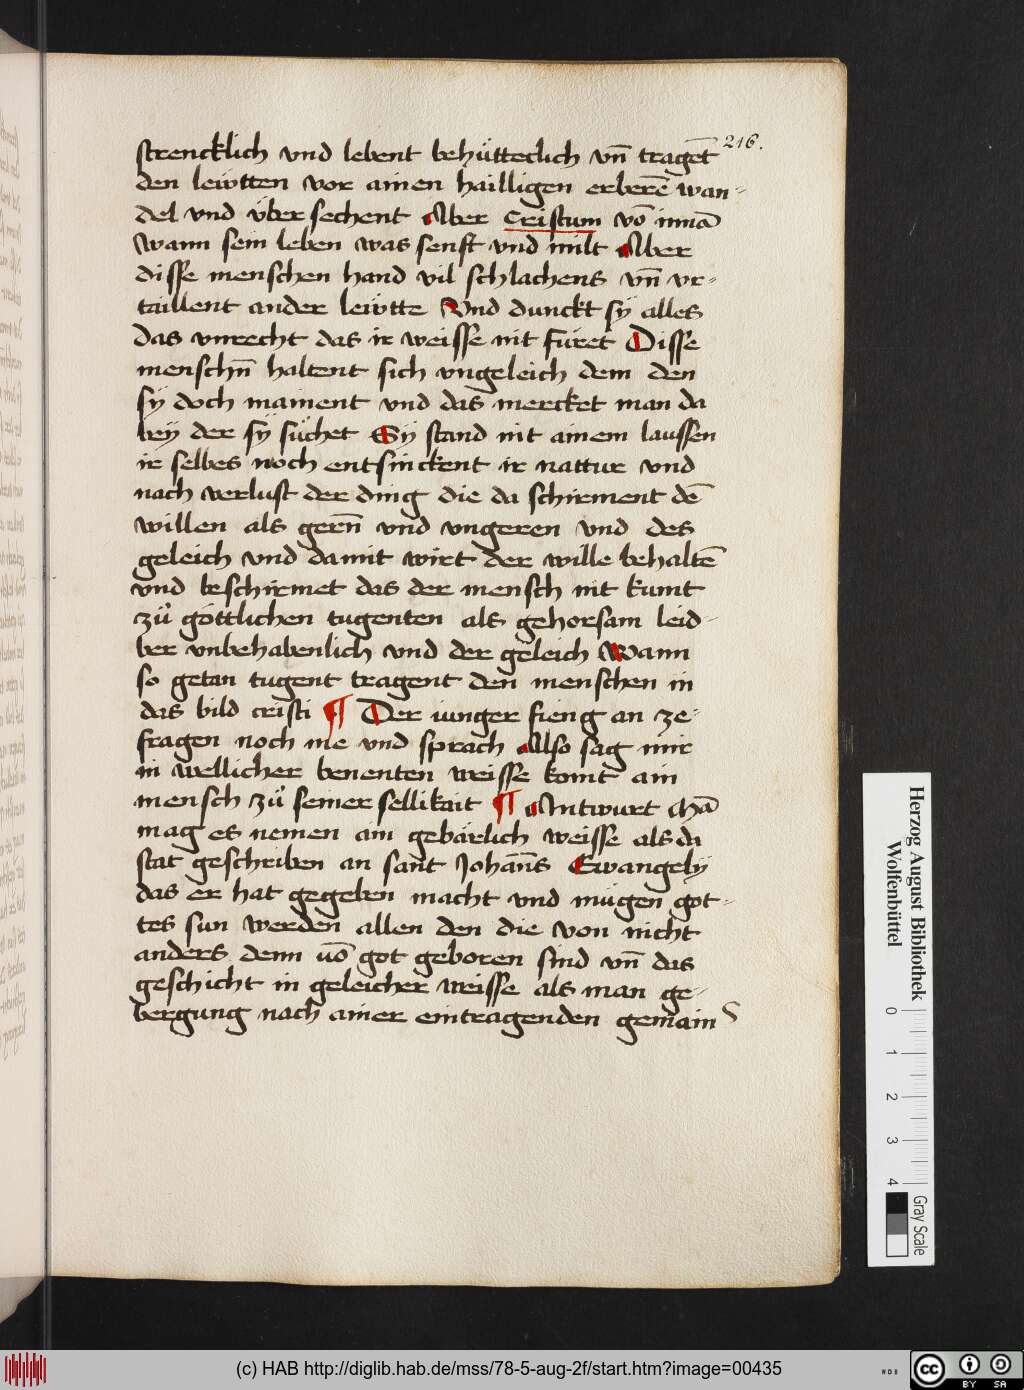 216.
strencklich vnd lebent behu̍tteclich vn̄ tragēt
den leẅtten vor ainen hailligen erberē wan-
del vnd v̈ber sechent Aber Cristum vō innā
wann sein leben was senft vnd milt Aber
disse menschen hand vil schlachens vn̄ vr-
taillent ander leẅtte Vnd dunckt sÿ alles
das vnrecht das ir weisse nit füret Disse
menschn̄ haltent sich vngeleich dem den
sÿ doch mainent vnd das mercket man da
beÿ der sÿ süchet Sÿ stand nit ainem laussen
ir selbes noch entsinckent ir nattur vnd
nach verlust der ding die da schirment dē
willen als gern̄ vnd vngeren vnd des
geleich vnd damit wirt der wille behaltē
vnd beschirmet das der mensch nit kumt
zů göttlichen tugenten als gehorsam leid-
ber vnbehabenlich vnd der geleich Wann
so getan tugent tragent den menschen in
das bild cristi ¶ Der iunger fieng an ze-
fragen noch me vnd sprach Also sag mir
in wellicher benenten weisse komt ain
mensch zů seiner sellikait ¶ Antwurt Chā
mag es nemen ain gebärlich weisse als da
stat geschriben an sant Johan̄s Ewangelÿ
das er hat gegeben macht vnd mügen got-
tes sun werden allen den die von nicht
anders denn uō got geboren sind vn̄ das
geschicht in geleicher weisse als man ge-
bergung nach ainer eintragenden gemain
Herzog August Bibliothek
Wolfenbüttel
0 1 2 3 4
Gray Scale
(c) HAB http://diglib.hab.de/mss/78-5-aug-2f/start.htm?image=00435
WDB
cc BY SA